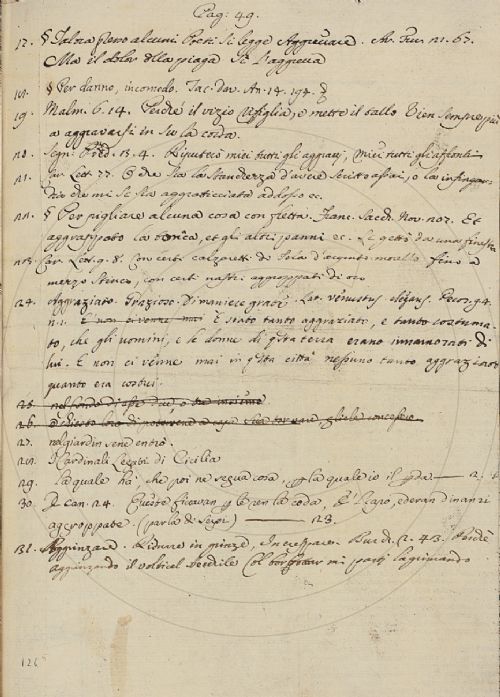 Pag: 49.
17. § Talora presso alcuni Poeti si legge Aggrevare. Av. Fur. 21. 67.
Ma il dolor della piaga sì l'aggreva
18. § Per danno, incomodo. Tac. Dav. An. 14. 194.
19. Malm. 6. 14. Perchè il vizio e mette il tallo Vien sempre più
a aggravarsi in su la coscia.
20. Segn. Pred. 13. 4. Riputerò miei tutti gli aggravj, miei tutti gli affronti
21. Lett. 77. O che sia la stanchezza d'avere scritto assai, o la
che mi si sia aggratticciata addosso ec.
22. § Per pigliare alcuna cosa con fretta. Franc. Sacch. Nov. 207. Et
aggrappato la tonica, et gli altri panni ec. si gettò da una finestra
23. Car. Lett. 9. 8. Con certi calzaretti di tela d'acquati morello fino a
mezzo stinco, con certi nastri aggroppati di oro
24. Aggraziato. Grazioso. Di maniere graziose. Lat. venustus, elegans. Pecor. g4.
n. 1. E non ci venne mai È stato tanto aggraziato, e tanto costuma-
to, che gli uomini, e le donne di questa terra erano innamorati di
lui. E non ci venne mai in questa città nessuno tanto aggraziato
quanto era costui.
25. nel fondo di
26. concesse
27. nel giardin sene entrò.
28. I Cardinali Legati di Cicilia
29. La quale ha che poi ne segua cosa, per la quale io il perda — 2.
30. E can. 24. Queste ficcavan per le ren la coda, E 'l capo, ed eran dinanzi
aggroppate. (parla di serpi) — 23.
31. Aggrinzare. Ridurre in grinze, Increspare. Burch. 2. 43. Perchè
aggrinzando il mi partì lagrimando
126